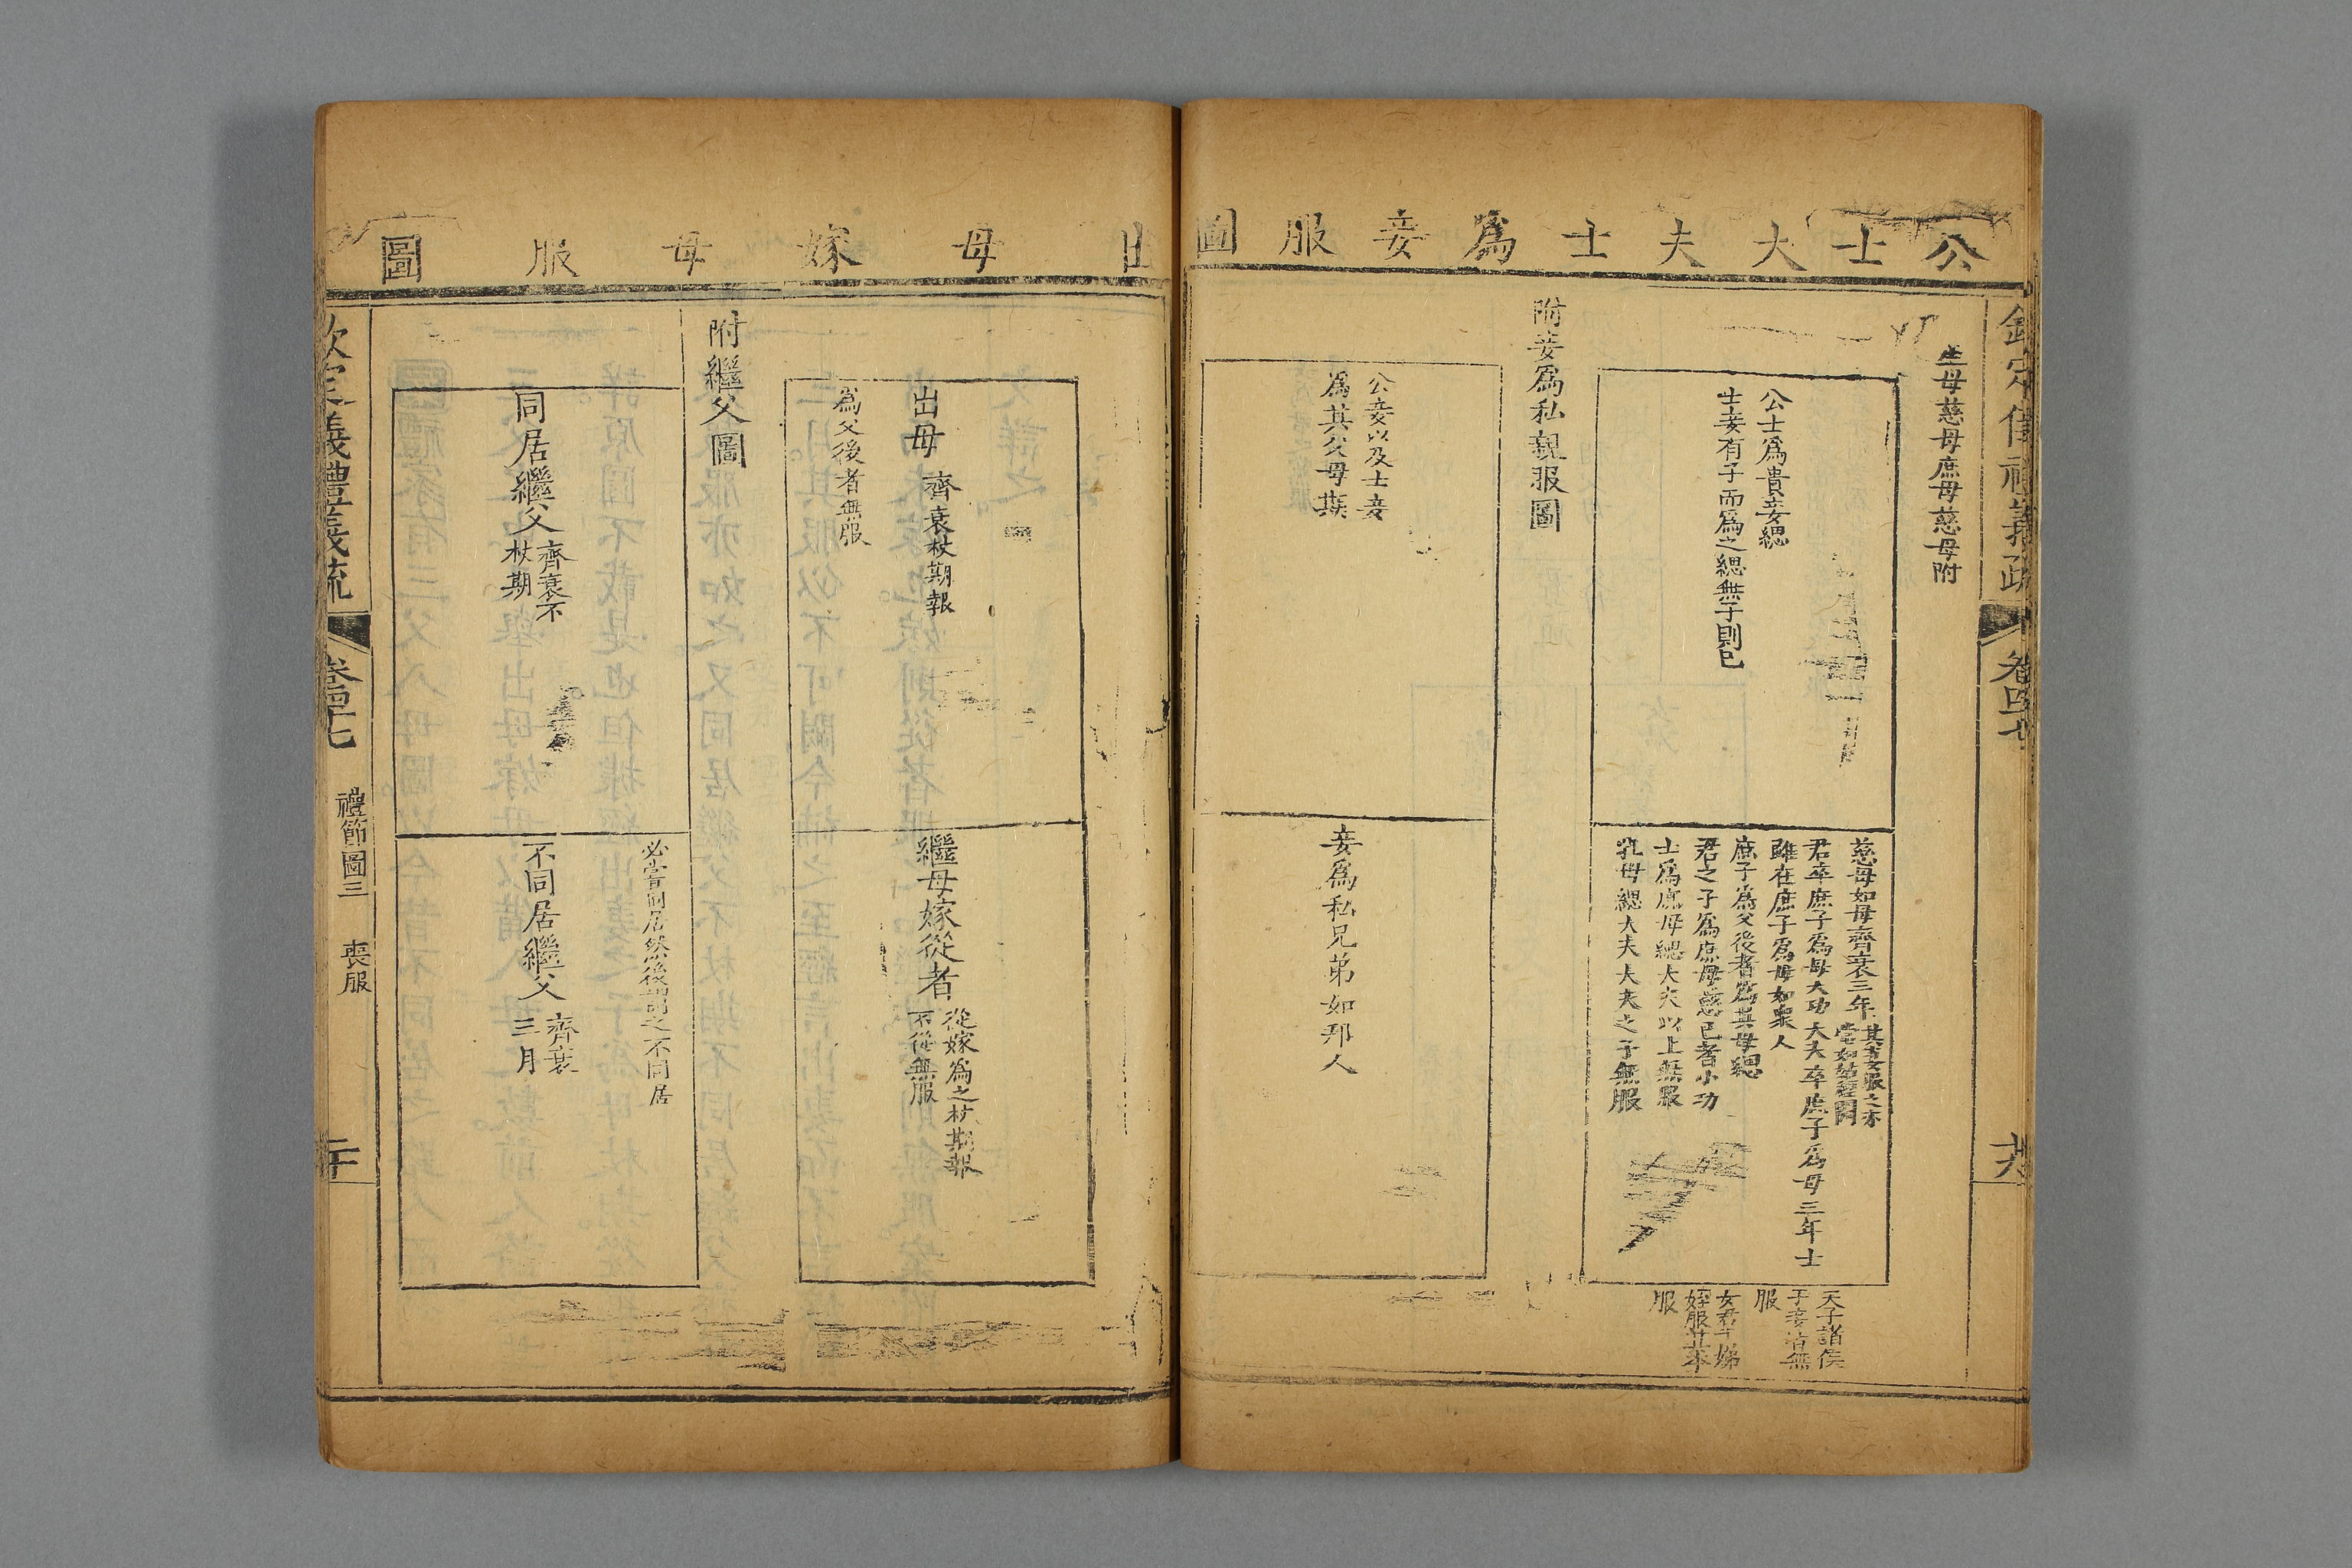 公士大夫士爲妾服圖
欽定儀禮義疏
卷四十七
生母慈母庶母慈母附
公士爲貴妾緦
士妾有子而爲之緦無子則已
慈母如母齊衰三年
君卒庶子爲母大功大夫卒庶子爲母三年士
雖在庶子爲母如衆人
庶子爲父後者爲其母緦
君之子爲庶母慈己者小功
士爲庶母緦大夫以上無服
乳母緦大夫大夫之子無服
天子諸侯
于妾皆無
服
女君于娣
姪服其本
服
附妾爲私親服圖
公妾以及士妾
爲其父母期
妾爲私兄弟如邦人
出母嫁母服圖
出母
齊衰杖期報
爲父後者無服
繼母嫁從者
從嫁爲之杖期報
不從無服
附繼父圖
同居繼父
齊衰不
杖期
必嘗同居然後謂之不同居
不同居繼父
齊衰
三月
欽定義禮義疏
卷四十七
禮節圖三
喪服